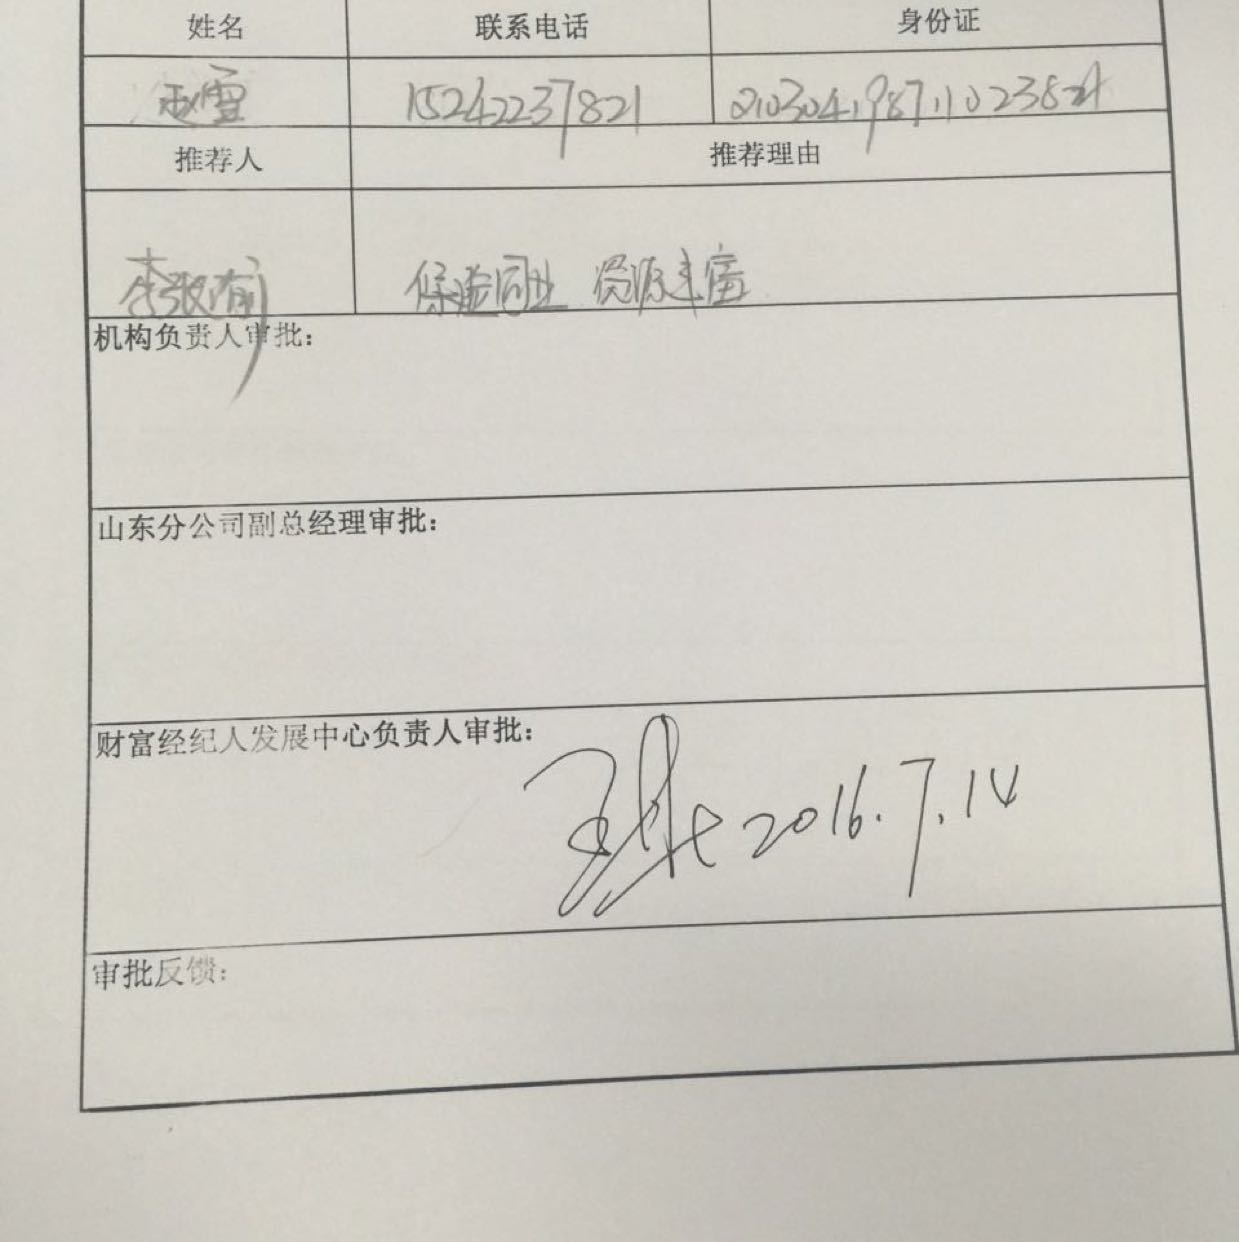 姓名 联系电话 身份证
赵雪 15242237821
推荐人 推荐理由
李淑 保险同业 资源丰富
机构负责人审批：
山东分公司副总经理审批：
财富经纪人发展中心负责人审批：
2016.7.14
审批反馈：